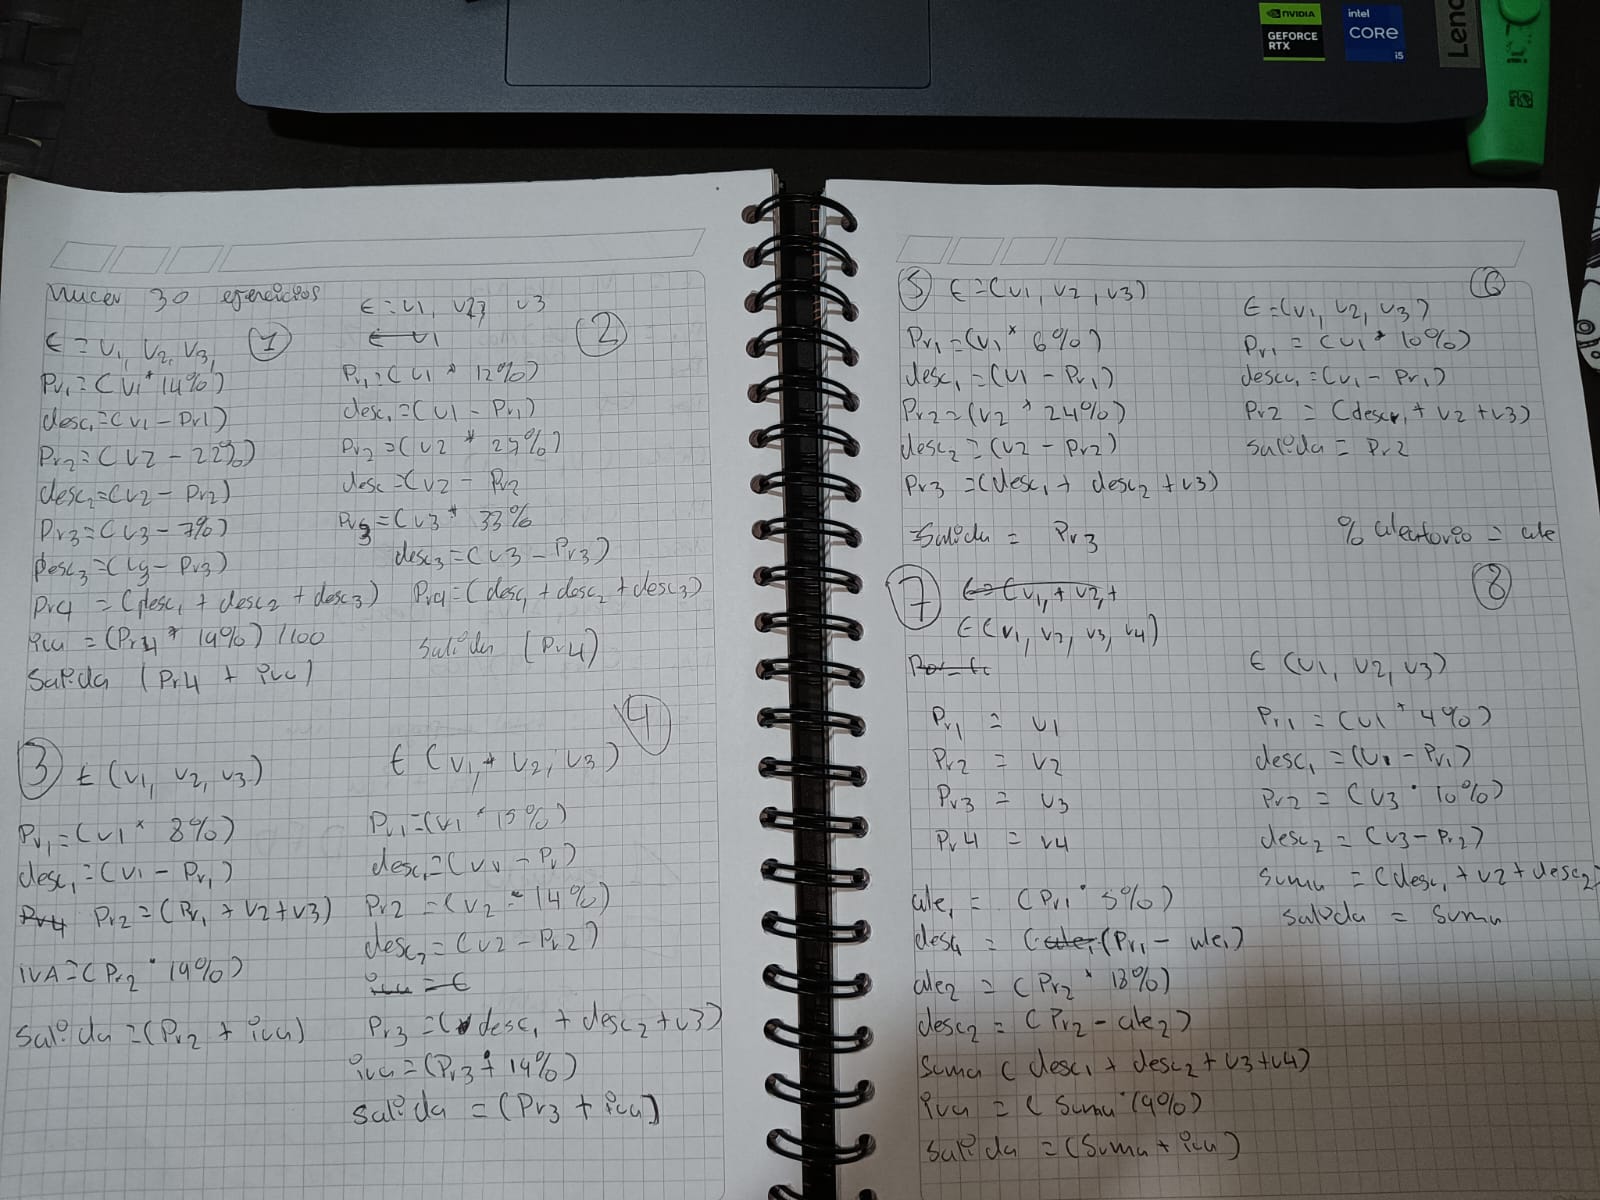 NVIDIA
GEFORCE
RTX
intel
CORE
i5
Leno
Hacer 30 ejercicios
①
E = v1, v2, v3,
Pr1 = (v1 * 14%)
desc1 = (v1 - Pr1)
Pr2 = (v2 - 22%)
desc2 = (v2 - Pr2)
Pr3 = (v3 - 7%)
Desc3 = (v3 - Pr3)
Pr4 = (desc1 + desc2 + desc3)
iva = (Pr4 * 19%) /100
Salida (Pr4 + iva)
②
E = v1, v2, v3
E v1
Pr1 = (v1 * 12%)
desc1 = (v1 - Pr1)
Pr2 = (v2 * 27%)
desc = (v2 - Pr2
Pr3 = (v3 * 33%
desc3 = (v3 - Pr3)
Pr4 = (desc1 + desc2 + desc3)
Salida (Pr4)
③ E (v1, v2, v3)
Pr1 = (v1 * 8%)
desc1 = (v1 - Pr1)
Pr4 Pr2 = (Pr1 + v2 + v3)
IVA = (Pr2 * 19%)
Salida = (Pr2 + iva)
④
E (v1, + v2, v3)
Pr1 = (v1 * 15%)
desc1 = (v1 - Pr)
Pr2 = (v2 - 14%)
desc2 = (v2 - Pr2)
iva = E
Pr3 = (desc1 + desc2 + v3)
iva = (Pr3 + 19%)
Salida = (Pr3 + iva)
⑤ E = (v1, v2, v3)
Pr1 = (v1 * 6%)
desc1 = (v1 - Pr1)
Pr2 = (v2 * 24%)
desc2 = (v2 - Pr2)
Pr3 = (desc1 + desc2 + v3)
Salida = Pr3
⑥
E = (v1, v2, v3)
Pr1 = (v1 * 10%)
desc1 = (v1 - Pr1)
Pr2 = (desc1 + v2 + v3)
Salida = Pr2
% aleatorio = ale
⑦ E = (v1, + v2, +
E (v1, v2, v3, v4)
Pr1 = v1
Pr2 = v2
Pr3 = v3
Pr4 = v4
ale1 = (Pr1 * 5%)
desc1 = (ale1 (Pr1 - ale1)
ale2 = (Pr2 * 13%)
desc2 = (Pr2 - ale2)
Suma ( desc1 + desc2 + v3 + v4)
iva = ( Suma * 19%)
Salida = (Suma + iva)
⑧
E (v1, v2, v3)
Pr1 = (v1 * 4%)
desc1 = (v1 - Pr1)
Pr2 = (v3 * 10%)
desc2 = (v3 - Pr2)
Suma = (desc1 + v2 + desc2)
Salida = Suma